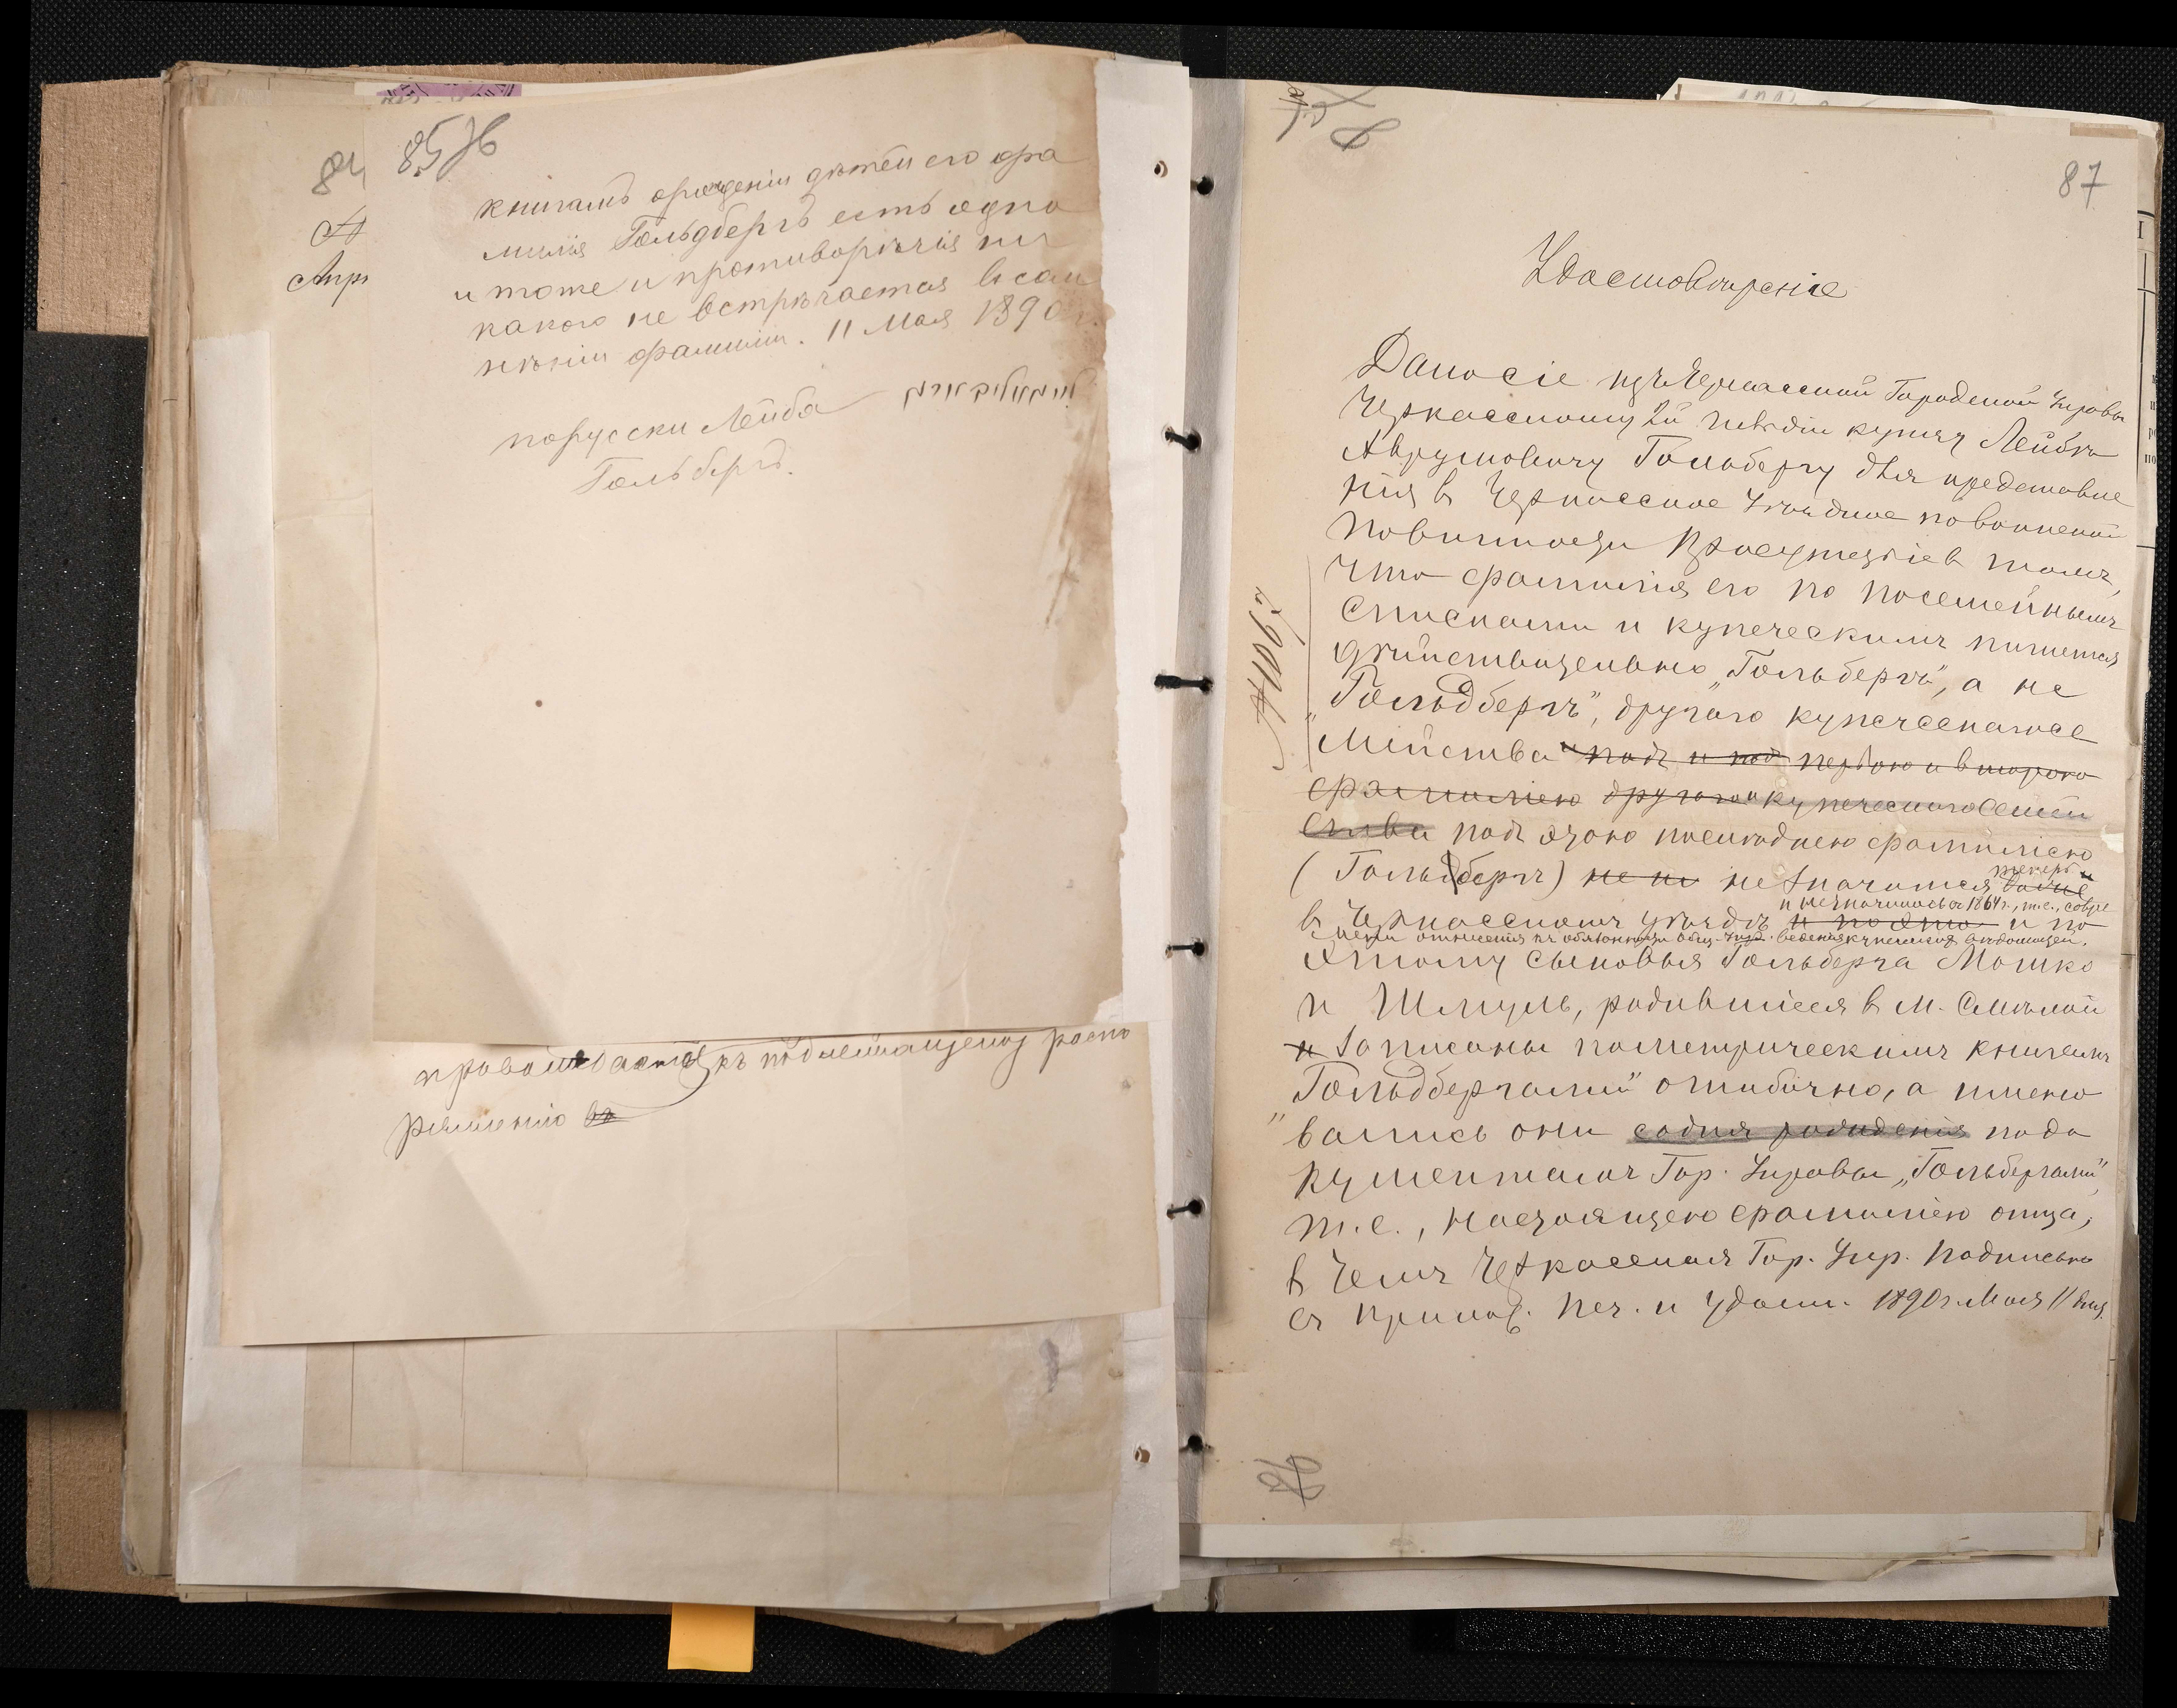 84
Апр
85 об
книгамъ о рожденіи дѣтей его фа
милія Гольдбергъ есть одно
и тоже и противорѣчія ни
какого не встрѣчается въ сом
нѣніи фамиліи. 11 Мая 1890 г.
порусски Лейба
Гольбергъ.
къ подлежащему распо
ряженію въ
87
Удостовѣреніе
Дано сіе изъ Черкасской Городской Управы
Черкасскому 2й гильдіи купцу Лейбѣ
Аврумовичу Гольбергу для представле
нія въ Черкасское Уѣздное по воинской
повинности Присутствіе въ томъ,
что фамилія его по посемейнымъ
спискамъ и купеческимъ пишется
дѣйствительно „Гольбергъ", а не
„Гольдбергъ", другого купеческаго се
мейства подъ и под первою и второю
фамиліею другого купеческаго семей
ства подъ этою послѣднею фамиліею
(Гольдбергъ) не зн не значится болѣе теперь и
и не значилось съ 1864 г., т.е., со вре
въ Черкасскомъ уѣздѣ и по этом и по
мени отнесенія къ обязанности Общ. Упр. веденія купеческихъ вѣдомостей.
этому сыновья Гольберга Мошко
и Шмуль, родившіеся въ м. Смѣлой
и записаны по метрическимъ книгамъ
„Гольдбергами" ошибочно, а имено
вались они со дня рожденія по до
кументамъ Гор. Управы „Гольбергами",
т.е., настоящею фамиліею отца,
въ чемъ Черкасская Гор. Упр. подписью
съ прилож. печ. и удост. 1890 г. Мая 11 дня.
№ 1067